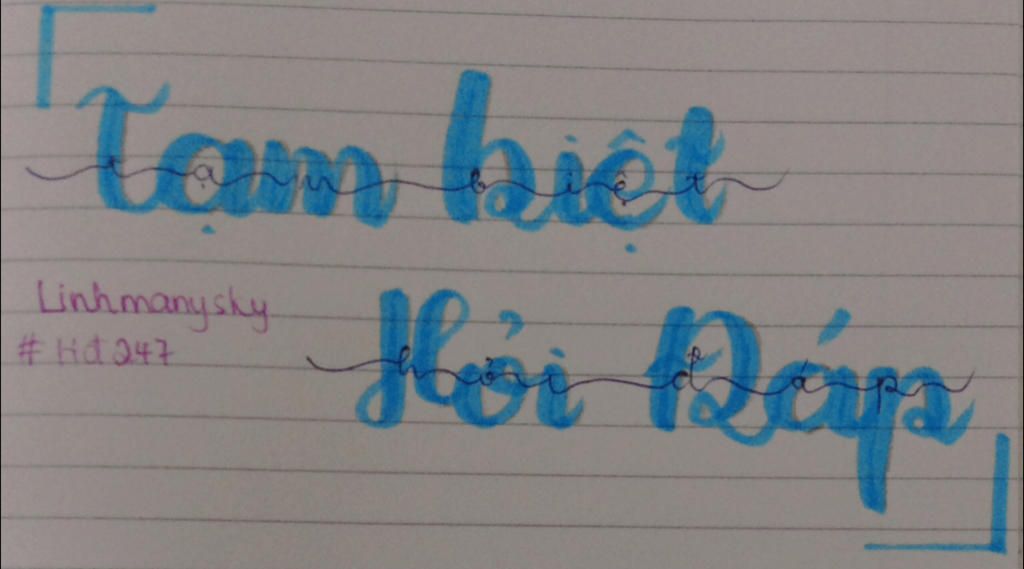 Tạm biệt
tạm biệt
Linhmanysky
#Hđ247
Hỏi Đáp
hỏi đáp